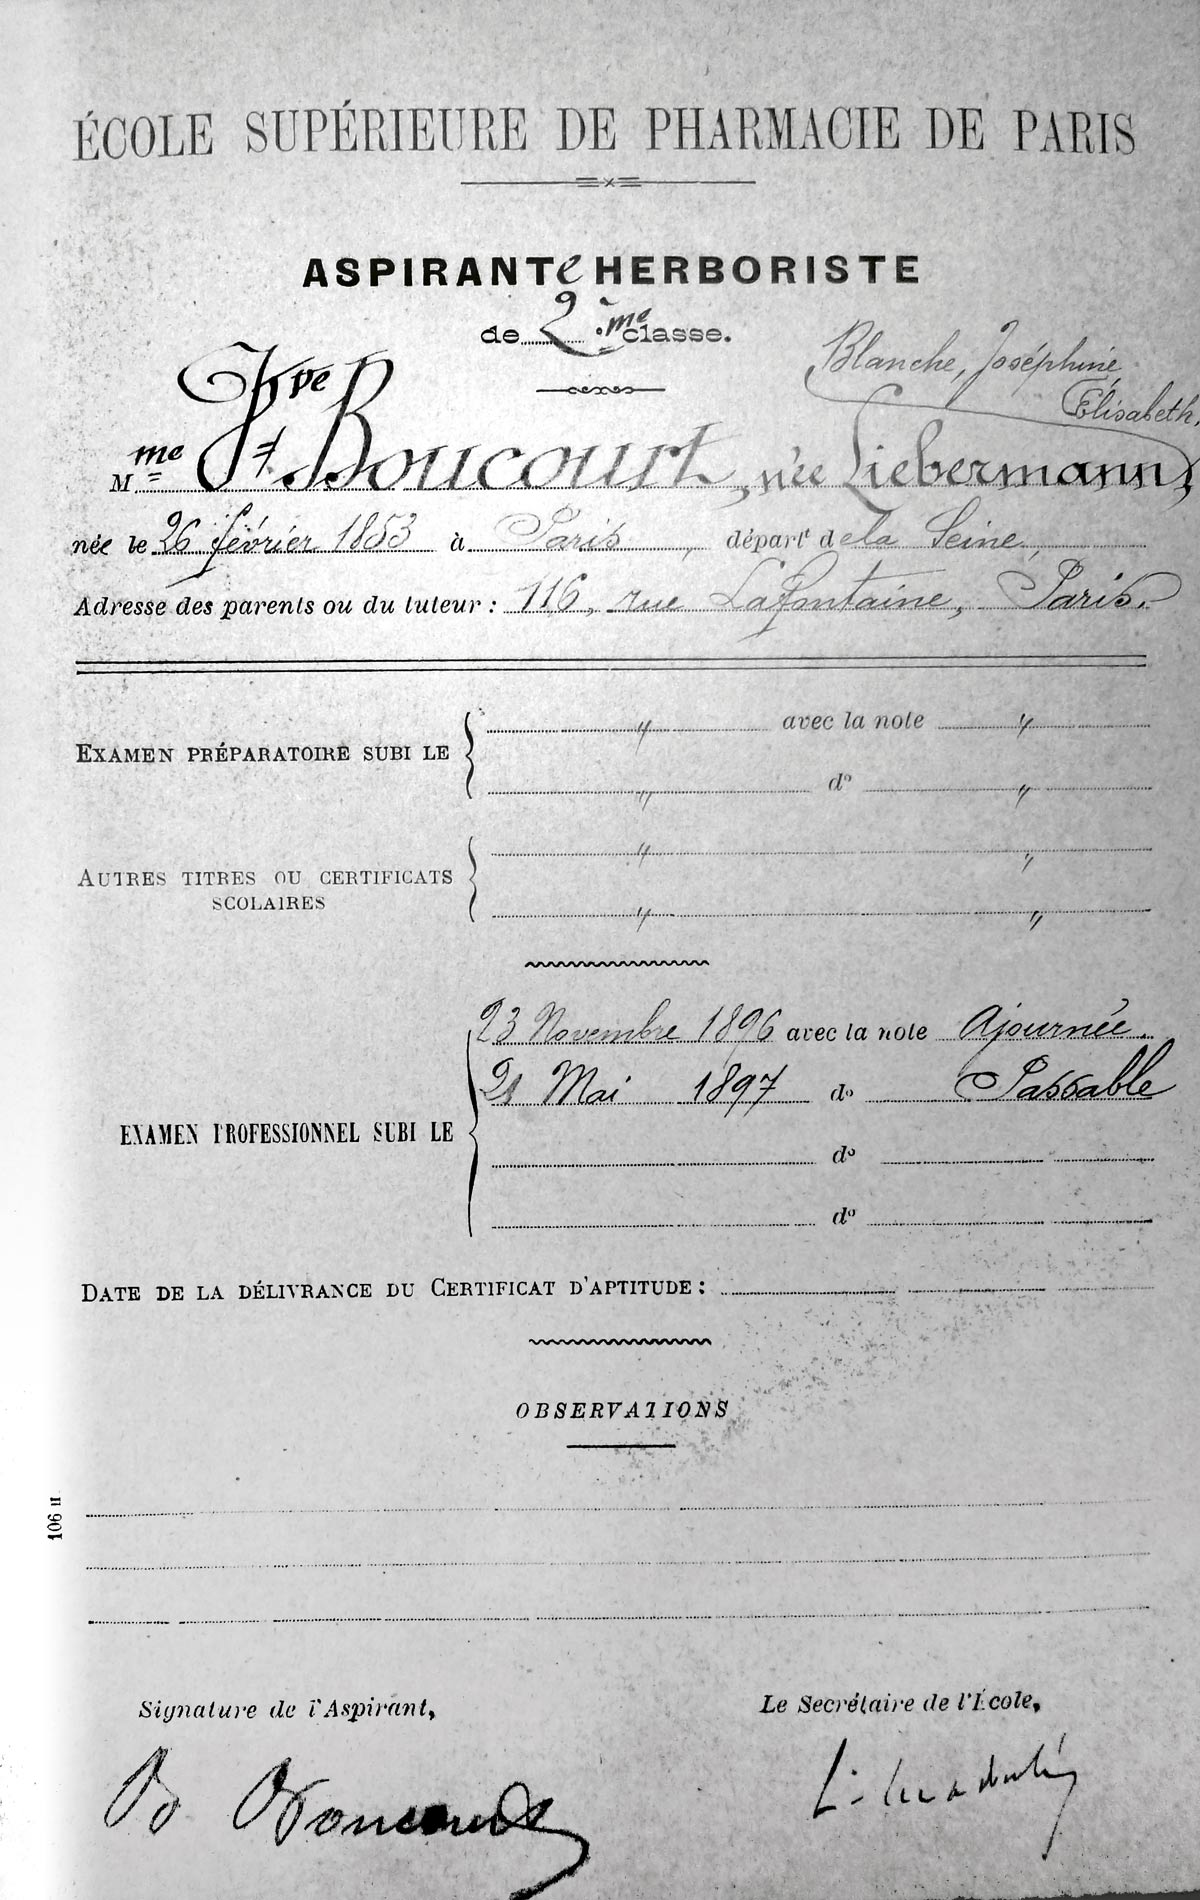 ÉCOLE SUPÉRIEURE DE PHARMACIE DE PARIS
ASPIRANTe HERBORISTE
de 2ème classe.
Blanche, Joséphine,
Élisabeth,
Mme Vve Boucourt, née Liebermann,
née le 26 février 1853 à Paris, départt de la Seine,
Adresse des parents ou du tuteur : 116, rue Lafontaine, Paris.
EXAMEN PRÉPARATOIRE SUBI LE { " avec la note "
" do "
AUTRES TITRES OU CERTIFICATS SCOLAIRES { " "
" "
23 Novembre 1896 avec la note Ajournée.
21 Mai 1897 do Passable
EXAMEN PROFESSIONNEL SUBI LE
do
do
DATE DE LA DÉLIVRANCE DU CERTIFICAT D'APTITUDE :
OBSERVATIONS
106 II
Signature de l'Aspirant,
Le Secrétaire de l'École,